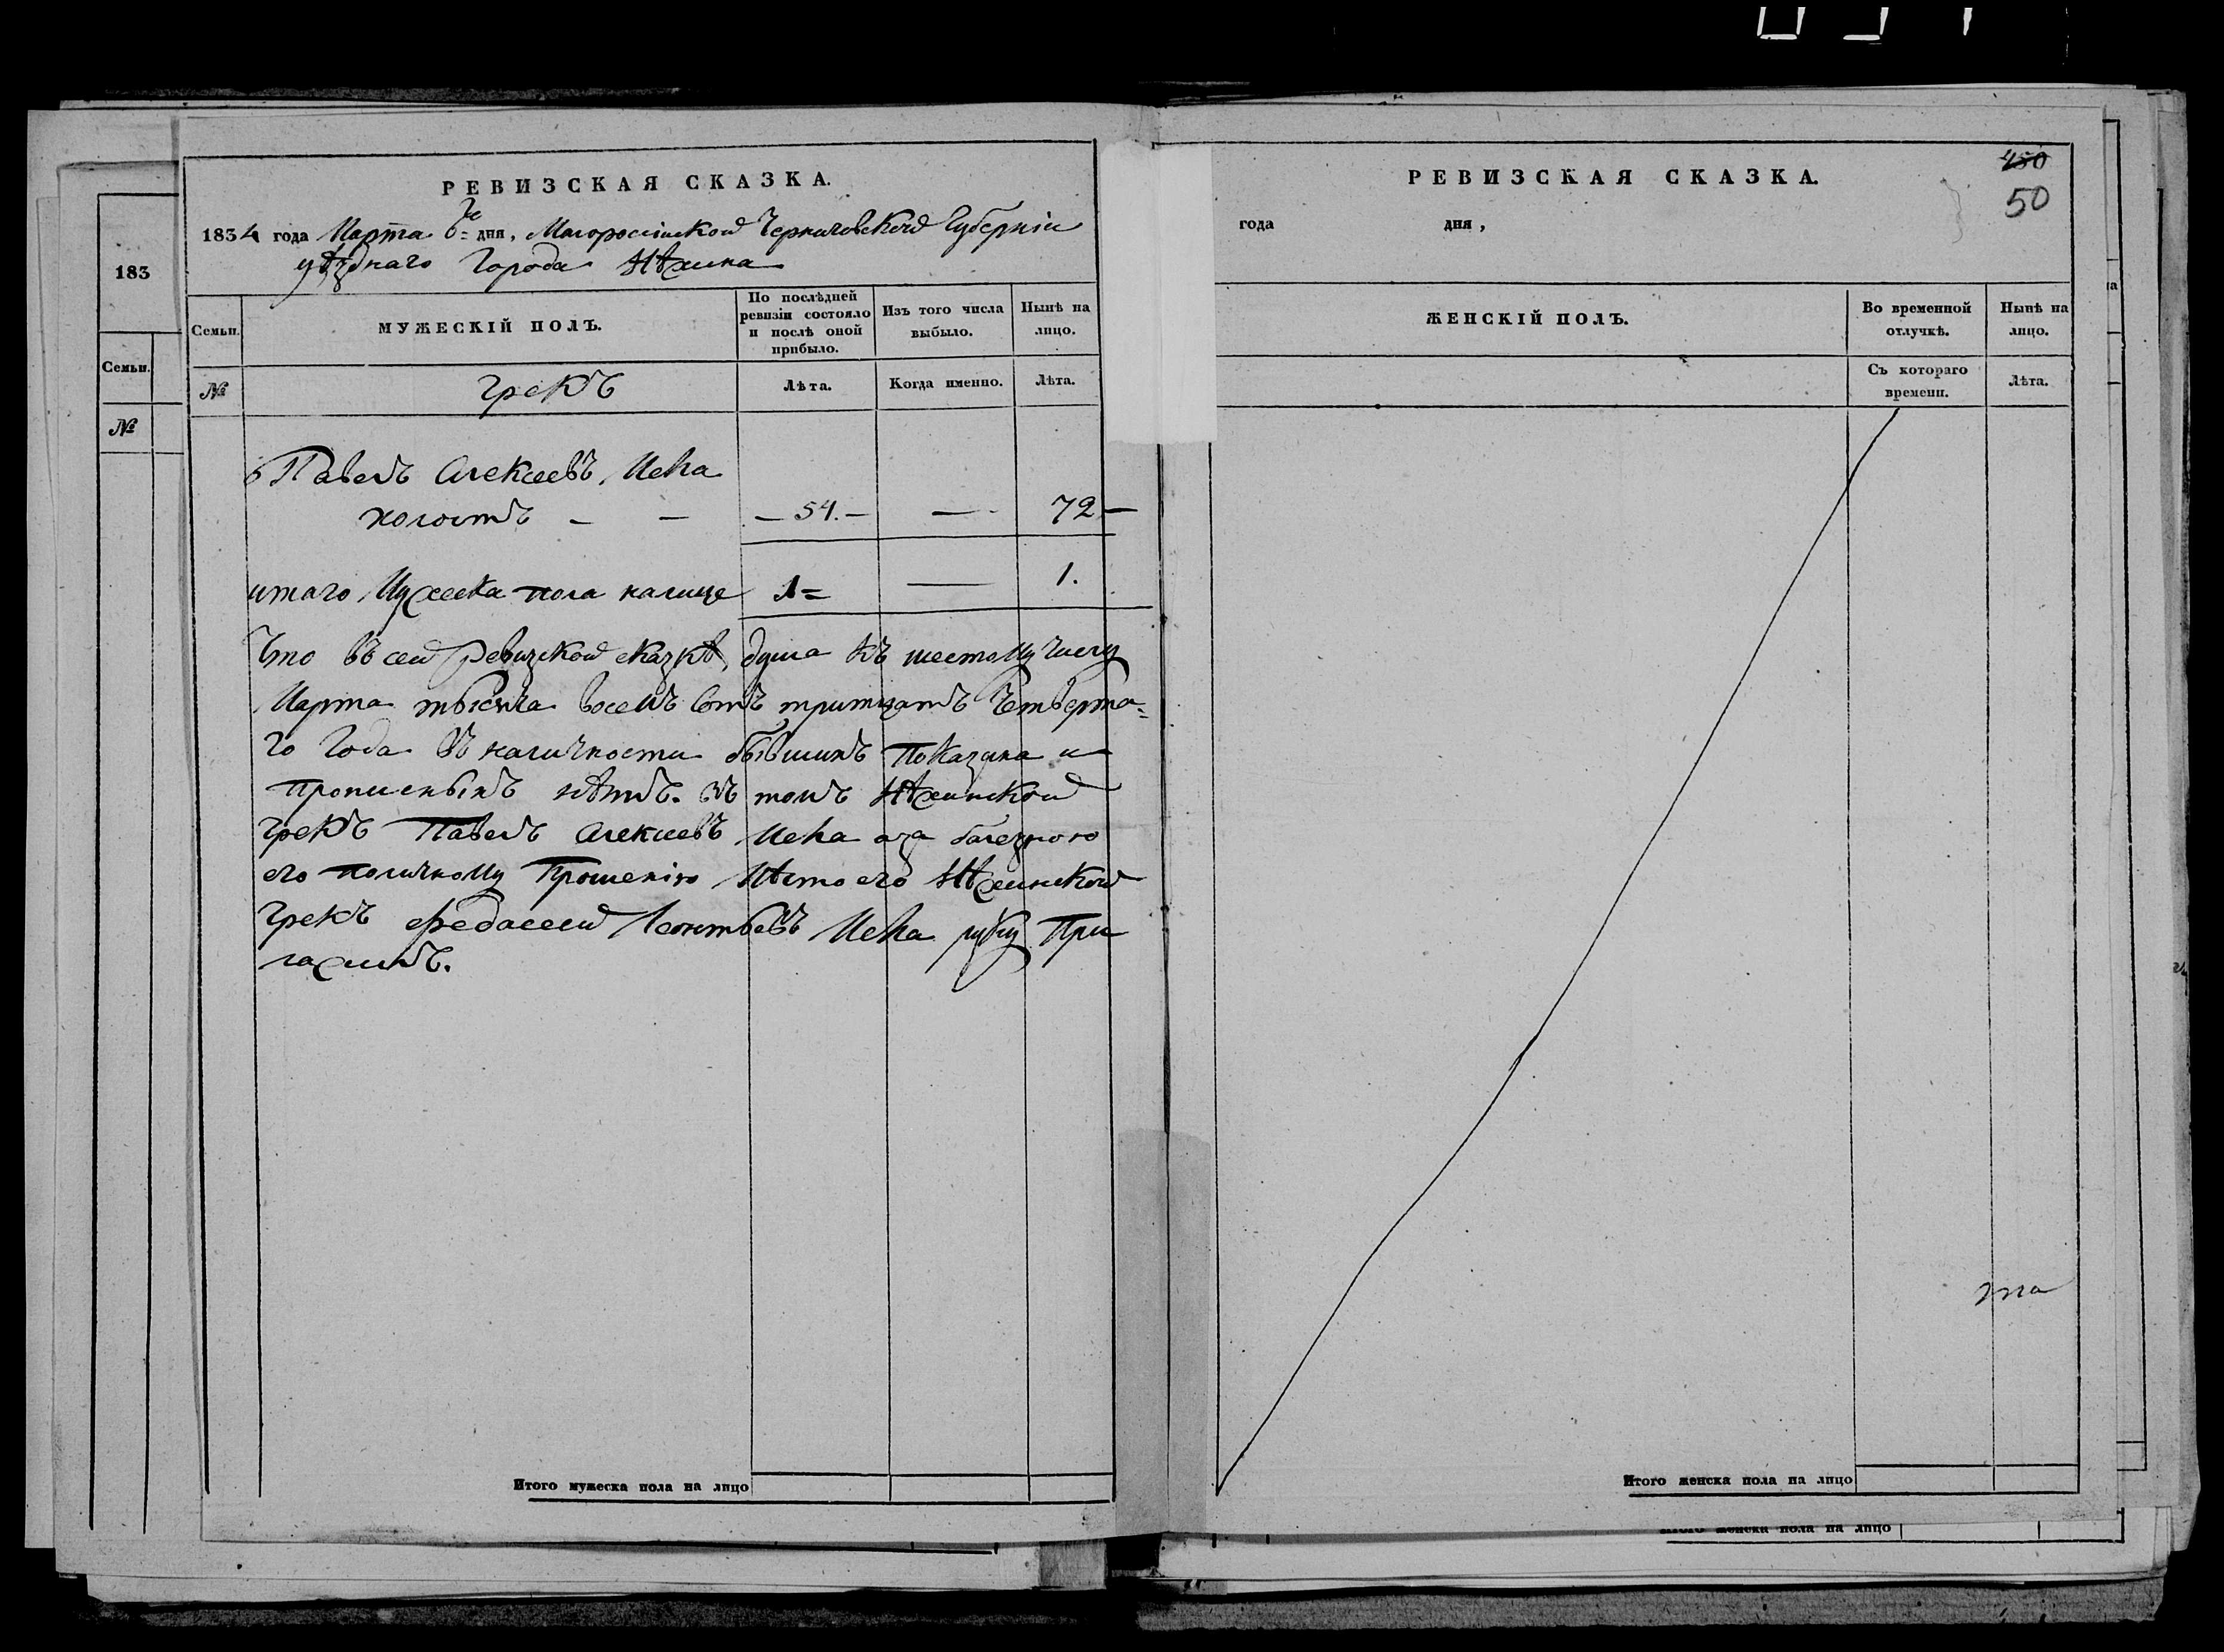 РЕВИЗСКАЯ СКАЗКА.
1834 года Марта 6го дня, Малоросійской Черниговской Губерніи
уѣзднаго Города Нѣжина
Семьи.
МУЖЕСКІЙ ПОЛЪ.
По послѣдней ревизіи состояло и послѣ оной прибыло.
Изъ того числа выбыло.
Нынѣ на лицо.
№
грекъ
Лѣта.
Когда именно.
Лѣта.
Павелъ Алексеевъ Мека
холостъ — — — 54. — — 72 —
итаго Мужеска пола налице 1= — 1.
Что въ сей Ревизской сказкѣ, душа къ шестому числу
Марта тысяча восемъ сотъ тритцать Четверта=
го Года въ наличности бывшихъ показана и
прописныхъ нѣтъ. въ томъ Нѣжинской
грекъ Павелъ Алексеевъ Мека аза балезною
его поличному Прошенію Мѣсто его Нѣжинской
грекъ Федасей Леонтьевъ Мека руку При
лажилъ.
Итого мужеска пола на лицо
РЕВИЗСКАЯ СКАЗКА.
450
50
года дня,
ЖЕНСКІЙ ПОЛЪ.
Во временной отлучкѣ.
Нынѣ на лицо.
Съ котораго времени.
Лѣта.
Итого женска пола на лицо
183
Семьи.
№
Итого женска пола на лицо